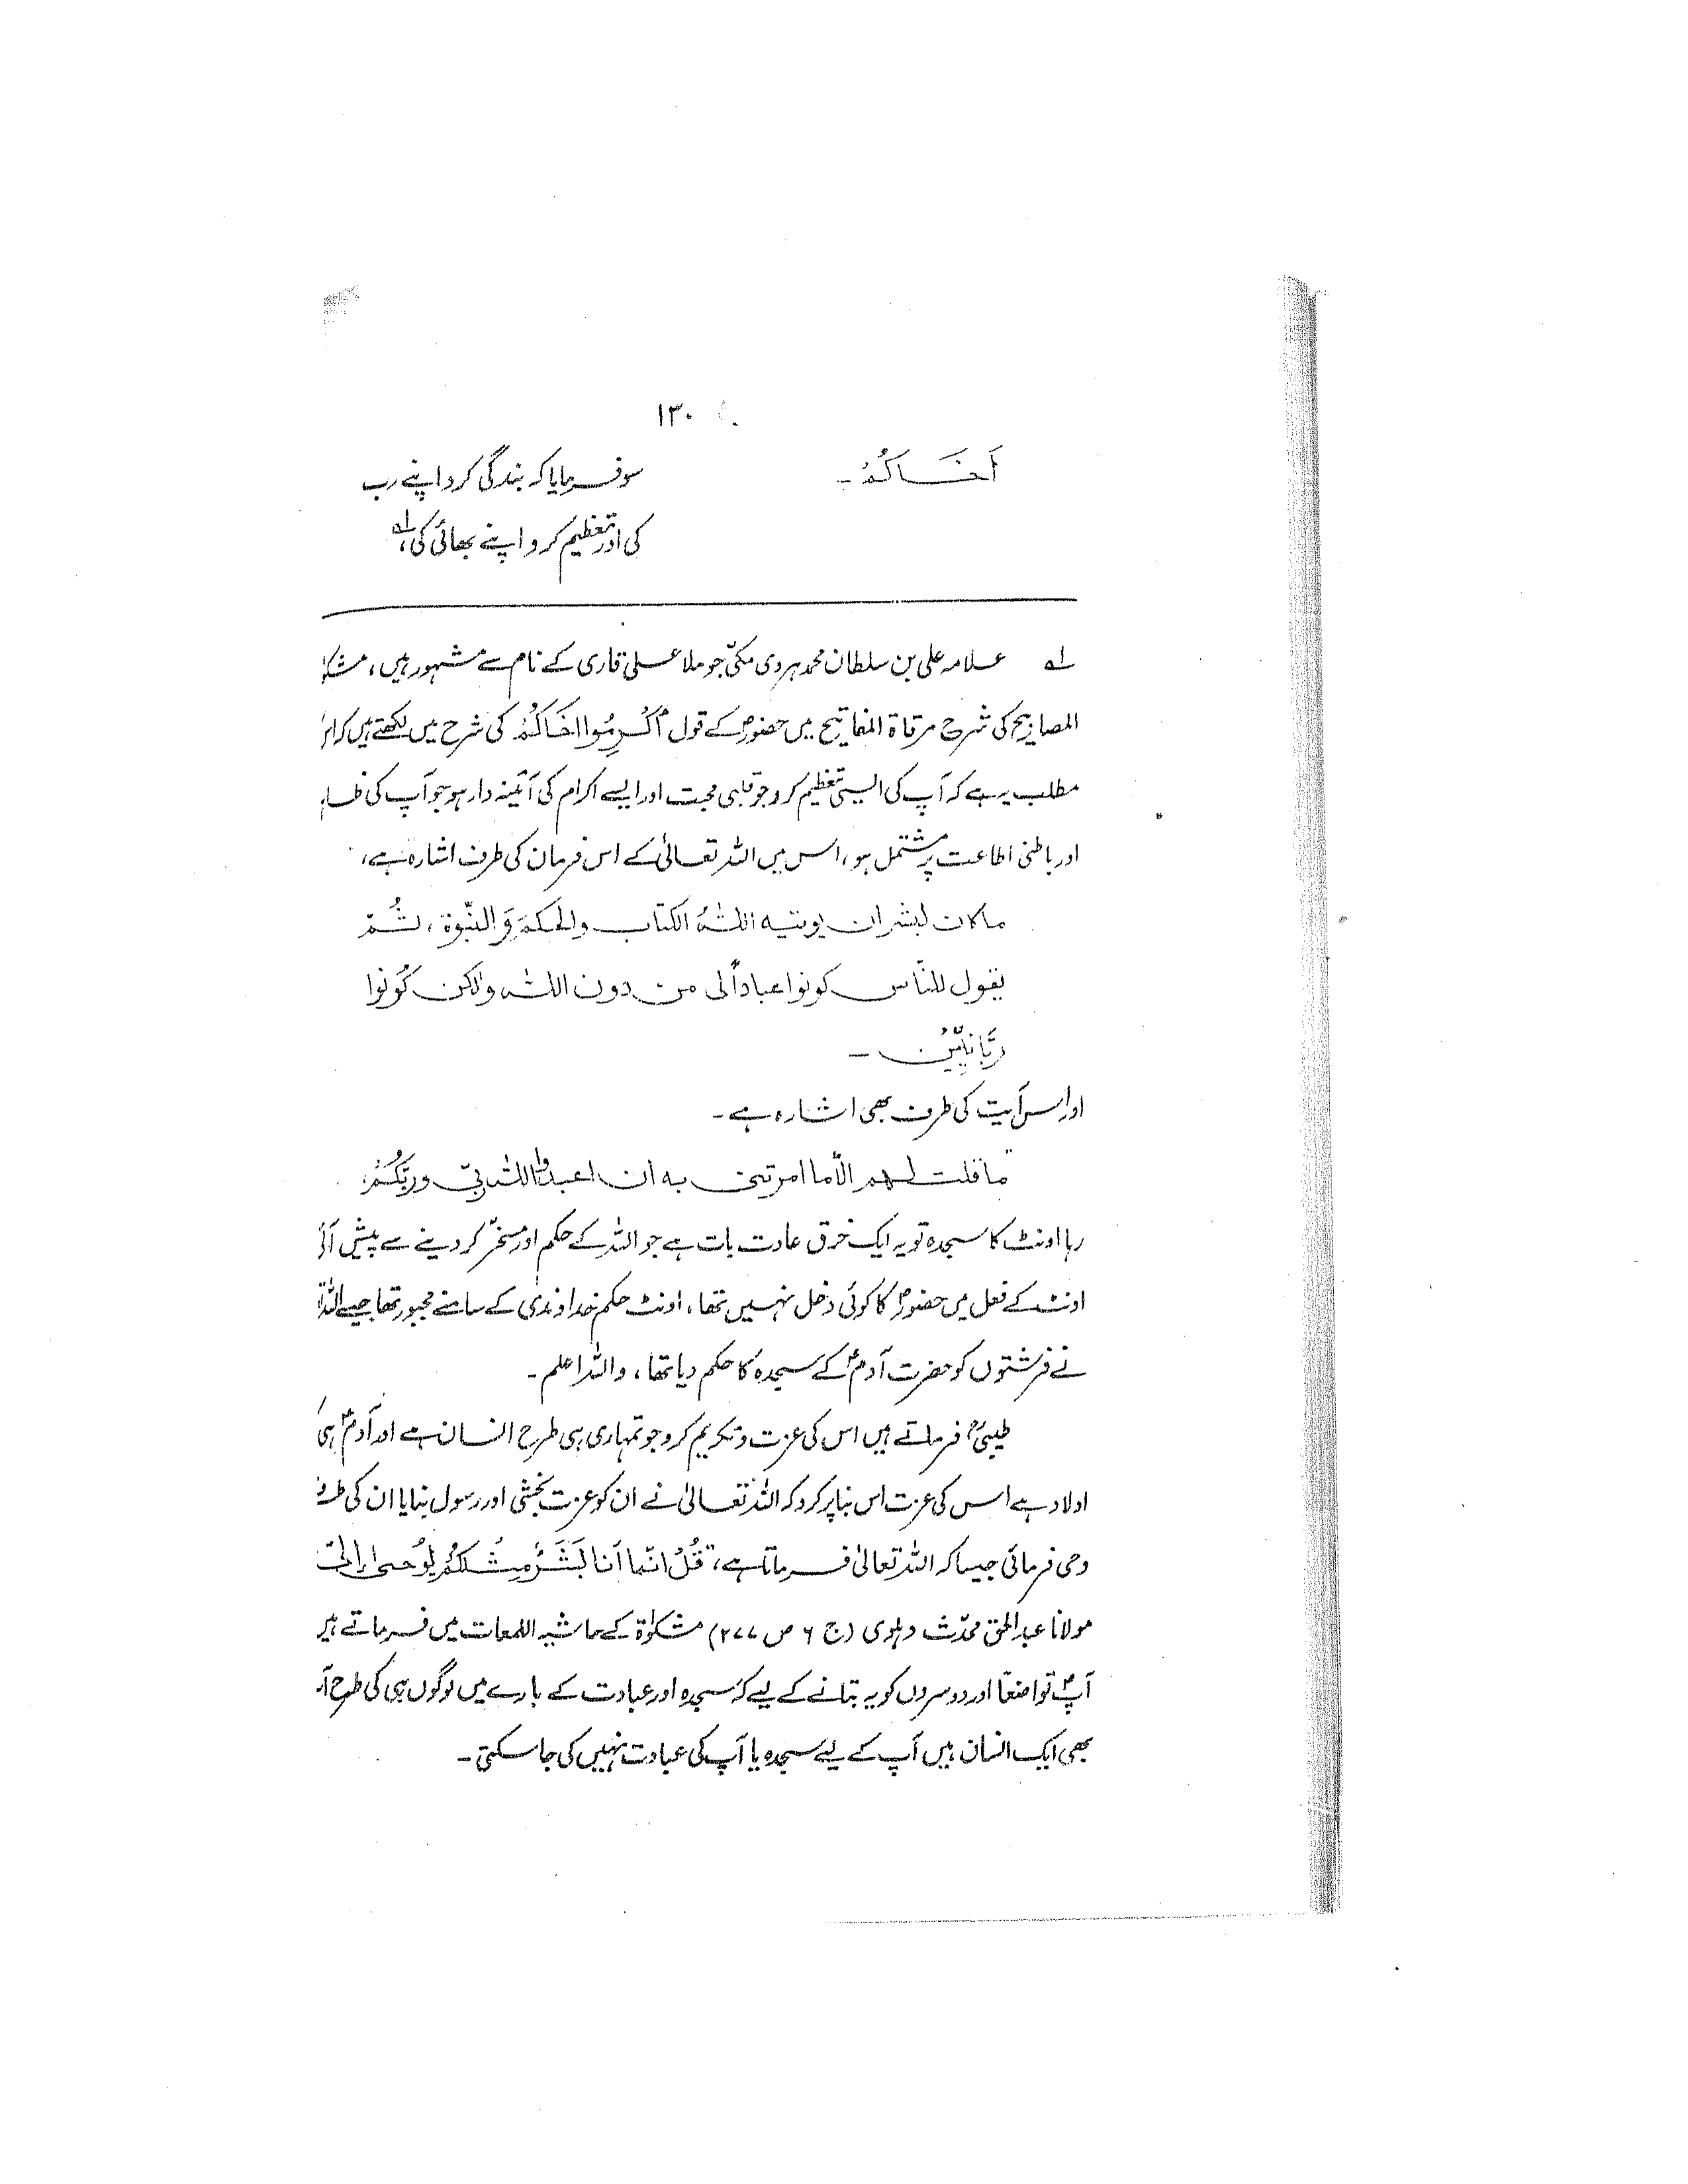 ۱۳۰
اَخَــاكُمْ ۔
سو فرمایا کہ بندگی کرو اپنے رب
کی اور تعظیم کرو اپنے بھائی کی، لہ
لہ علامہ علی بن سلطان محمد ہروی مکیّ جو ملا علی قاری کے نام سے مشہور ہیں،
المصابیح کی شرح مرقاة المفاتیح میں حضورؐ کے قول اُكْرِمُوا اخَاكُمْ کی شرح میں لکھتے ہیں کہ
مطلب یہ ہے کہ آپ کی ایسی تعظیم کرو جو قلبی محبت اور ایسے اکرام کی آئینہ دار ہو جو آپ کی
اور باطنی اطاعت پر مشتمل ہو، اس میں اللہ تعالیٰ کے اس فرمان کی طرف اشارہ ہے،
ماكان لبشران يوتيه اللهُ الكتاب والحكمَ وَ النبّوة ، ثُمّ
يقول للنّاس كونوا عباداً لى من دون الله ولٰكن كُونوا
ربَّانيّيْن ۔
اور اس آیت کی طرف بھی اشارہ ہے ۔
"ما قلت لهم الّا ما امرتنى به ان اعبدوا الله ربّى وربّكُمْ
رہا اونٹ کا سجدہ تو یہ ایک خرق عادت بات ہے جو اللہ کے حکم اور مسخّر کر دینے سے پیش
اونٹ کے فعل میں حضورؐ کا کوئی دخل نہیں تھا، اونٹ حکم خداوندی کے سامنے مجبور تھا جیسے اللہ
نے فرشتوں کو حضرت آدمؑ کے سجدہ کا حکم دیا تھا، واللہ اعلم ۔
طیبیؒ فرماتے ہیں اس کی عزت و تکریم کرو جو تمہاری ہی طرح انسان ہے اور آدمؑ ہی
اولاد ہے اس کی عزت اس بنا پر کرو کہ اللہ تعالیٰ نے ان کو عزت بخشی اور رسول بنایا ان کی
وحی فرمائی جیسا کہ اللہ تعالیٰ فرماتا ہے، "قُلْ انّما اَنا بَشَرٌ مِثْلُكُمْ يُوحىٰ اِلىّ
مولانا عبد الحق محدّث دہلوی (ج ۶ ص ۲۷۷) مشکوٰة کے حاشیہ اللمعات میں فرماتے ہیں
آپؐ تواضعاً اور دوسروں کو یہ بتانے کے لیے کہ سجدہ اور عبادت کے بارے میں لوگوں ہی کی طرح
بھی ایک انسان ہیں آپ کے لیے سجدہ یا آپ کی عبادت نہیں کی جاسکتی ۔